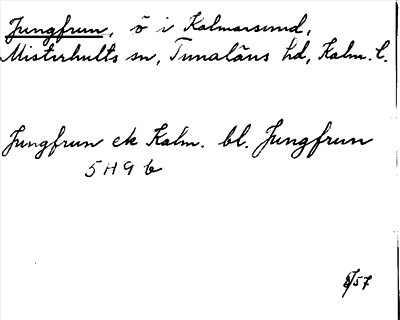 Jungfrun, ö i Kalmarsund,
Misterhults sn, Tunaläns hd, Kalm. l.
Jungfrun ek Kalm. bl. Jungfrun
5 H 9 b
/57